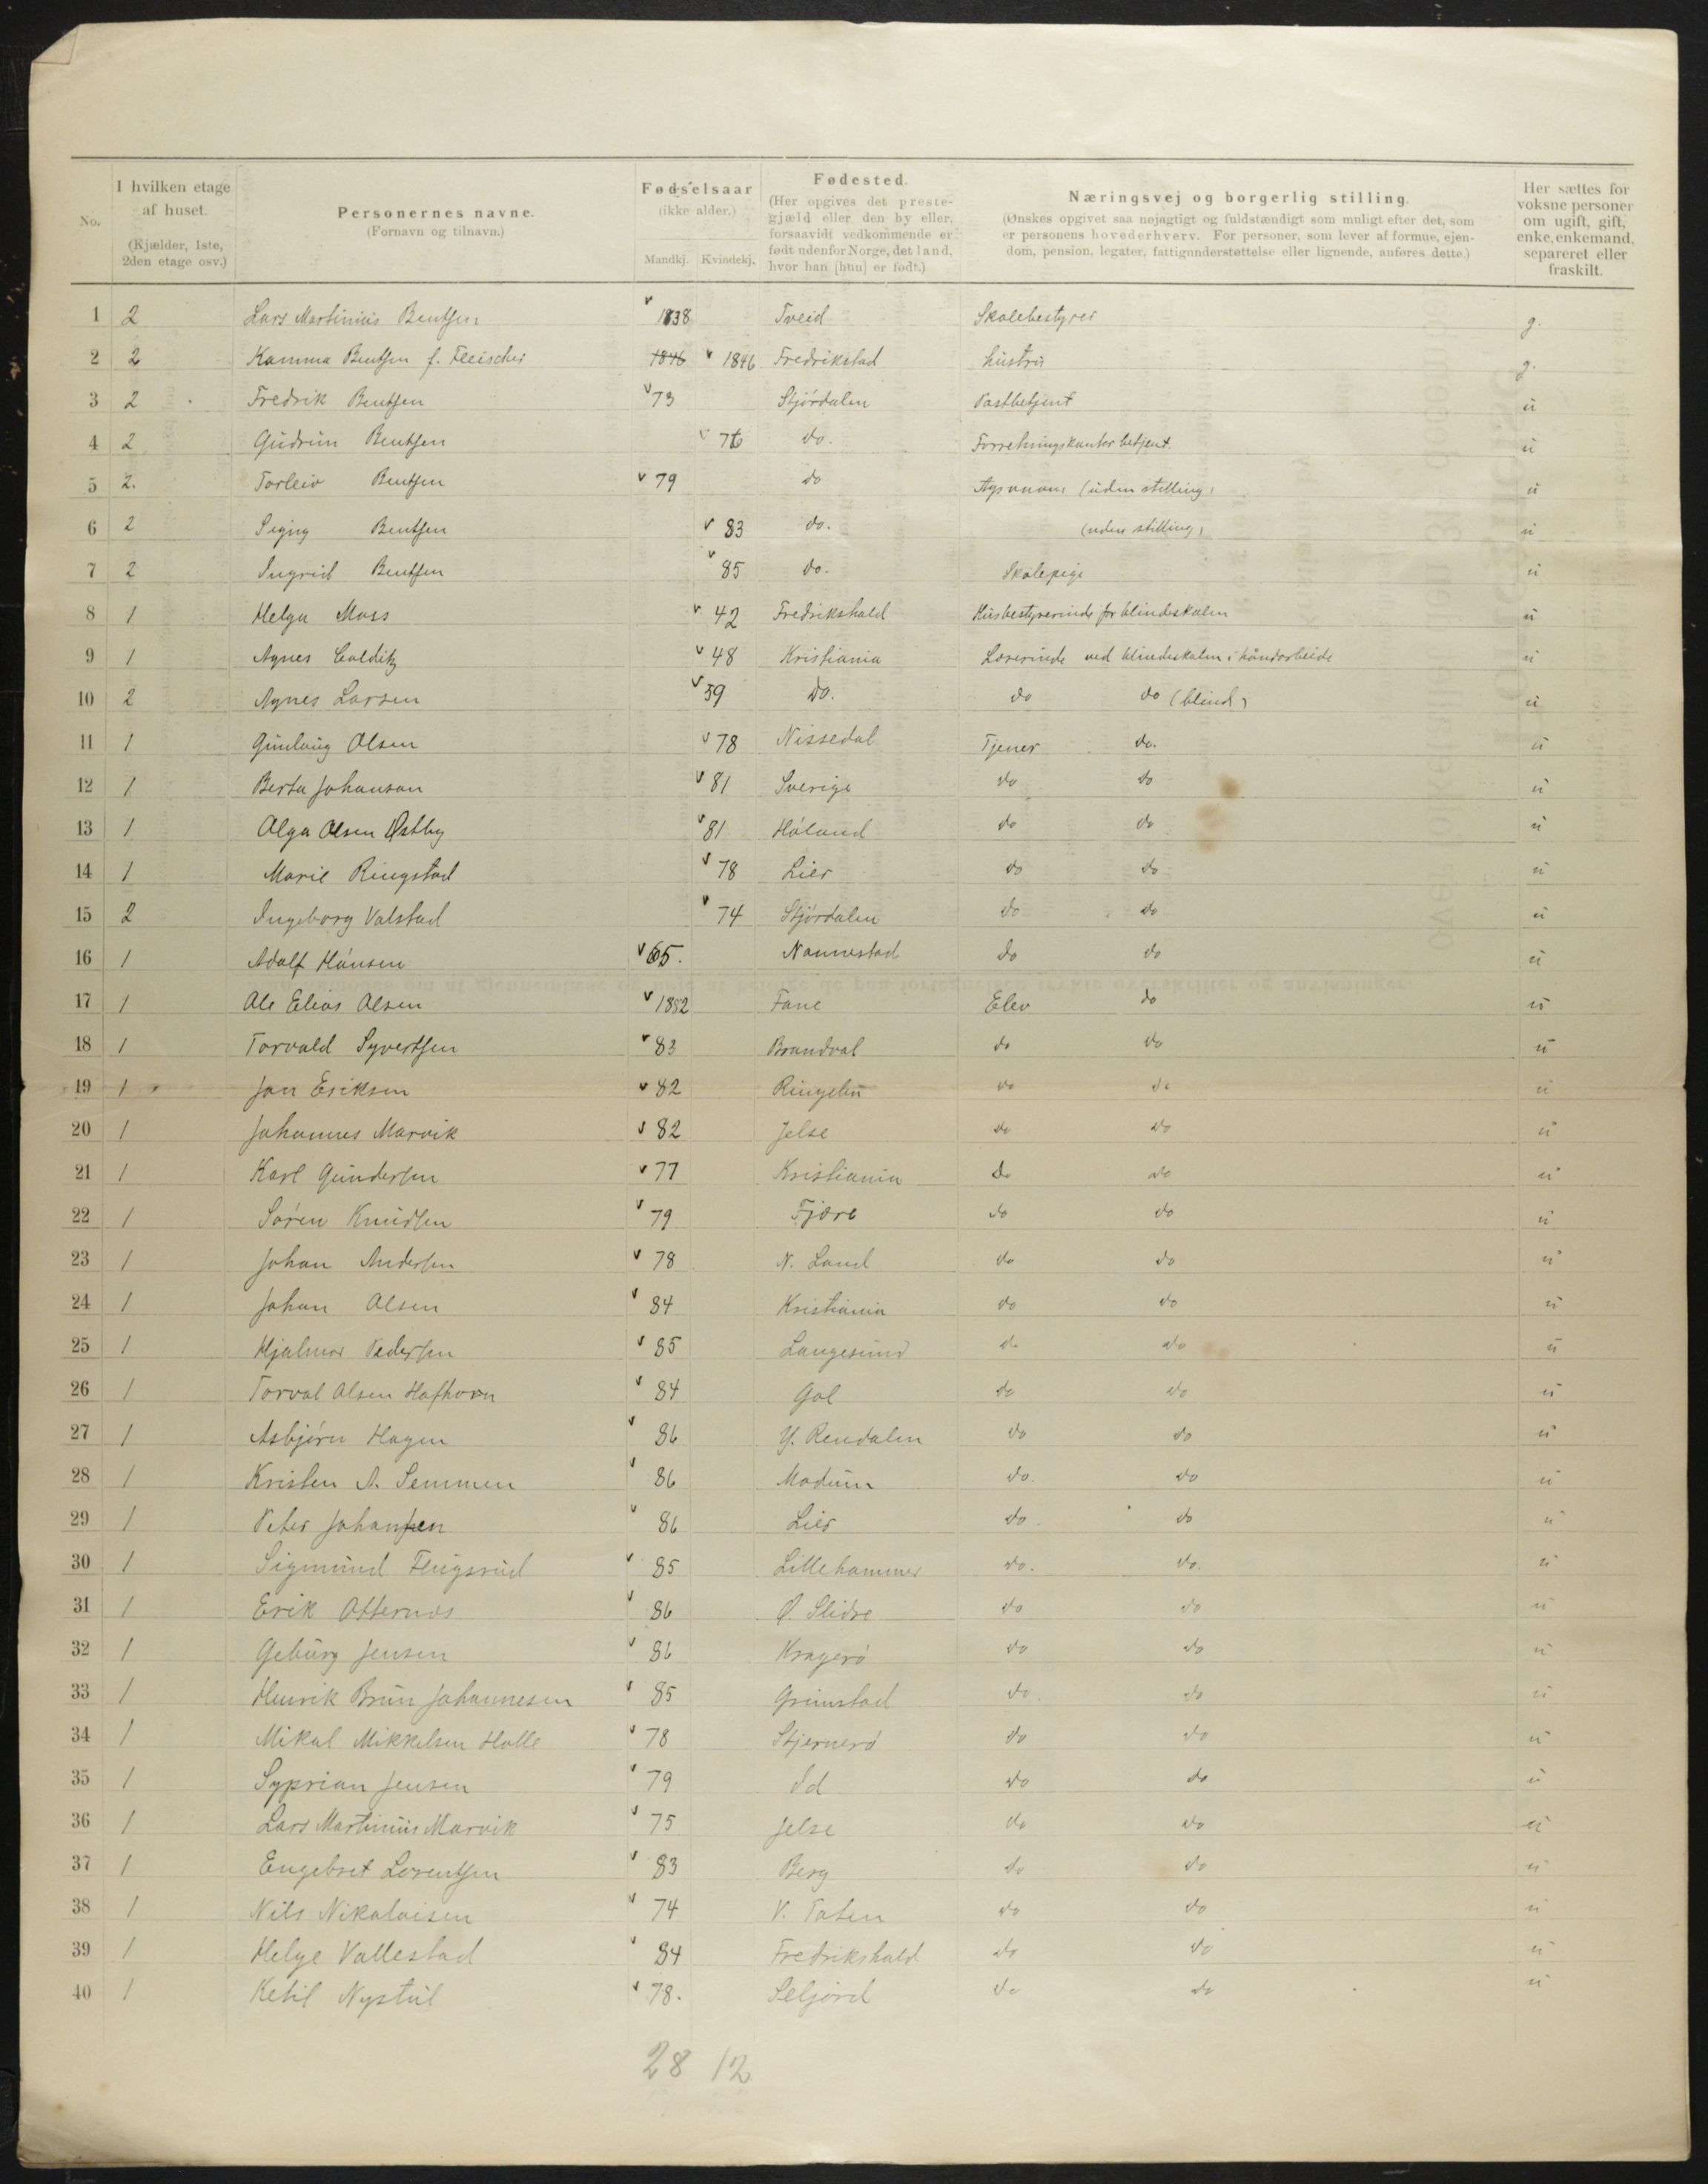 No.
I hvilken etage af huset. (Kjælder, 1ste, 2den etage osv.)
Personernes navne. (Fornavn og tilnavn.)
Fødselsaar (ikke alder.) Mandkj. Kvindekj.
Fødested. (Her opgives det prestegjæld eller den by eller, forsaavidt vedkommende er født udenfor Norge, det land, hvor han [hun] er født.)
Næringsvej og borgerlig stilling. (Ønskes opgivet saa nøjagtigt og fuldstændigt som muligt efter det, som er personens hovederhverv. For personer, som lever af formue, ejendom, pension, legater, fattigunderstøttelse eller lignende, anføres dette.)
Her sættes for voksne personer om ugift, gift, enke, enkemand, separeret eller fraskilt.
1 2 Lars Martinius Bentsen v 1838 Tveid Skolebestyrer g.
2 2 Kamma Bentsen f. Fleischer 1846 v 1846 Fredrikstad hustru g.
3 2 Fredrik Bentsen v 73 Stjørdalen Postbetjent u
4 2 Gudrun Bentsen v 76 do. Forretningskontor betjent. u
5 2. Torleiv Bentsen v 79 do Agronom (uden stilling) u
6 2 Signy Bentsen v 83 do. (uden stilling) u
7 2 Ingrid Bentsen v 85 do. Skolepige u
8 1 Helga Moss v 42 Fredrikshald Husbestyrerinde for blindeskolen u
9 1 Agnes Colditz v 48 Kristiania Lærerinde ved blindeskolen i håndarbeide u
10 2 Agnes Larsen v 59 do. do do (blind) u
11 1 Gunlaug Olsen v 78 Nissedal Tjener do. u
12 1 Berta Johanson v 81 Sverige do do u
13 1 Olga Olsen Østby v 81 Høland do do u
14 1 Marie Ringstad v 78 Lier do do u
15 2 Ingeborg Valstad v 74 Stjørdalen do do u
16 1 Adolf Hansen v 65. Nannestad do do u
17 1 Ole Elias Olsen v 1882 Fane Elev do u
18 1 Torvald Syvertsen v 83 Brandval do do u
19 1 Jon Eriksen v 82 Ringebu do do u
20 1 Johannes Marvik v 82 Jelse do do u
21 1 Karl Gundersen v 77 Kristiania do do u
22 1 Søren Knudsen v 79 Fjære do do u
23 1 Johan Andersen v 78 N. Land do do u
24 1 Johan Olsen v 84 Kristiania do do u
25 1 Hjalmar Pedersen v 85 Langesund do do u
26 1 Torval Olsen Hafhorn v 84 Gol do do u
27 1 Asbjørn Hagen v 86 Y. Rendalen do do u
28 1 Kristen A. Semmen v 86 Modum do. do u
29 1 Peter Johansen v 86 Lier do. do u
30 1 Sigmund Flugsrud v 85 Lillehammer do. do. u
31 1 Erik Otternæs v 86 Ø. Slidre do do u
32 1 Gebürg Jensen v 86 Kragerø do do u
33 1 Henrik Brun Johannesen v 85 Grimstad do. do u
34 1 Mikal Mikkelsen Halle v 78 Stjernerø do do u
35 1 Syprian Jensen v 79 Id do do u
36 1 Lars Martinius Marvik v 75 Jelse do do u
37 1 Engebret Lorentsen v 83 Berg do do u
38 1 Nils Nikolaisen v 74 V. Toten do do u
39 1 Helge Vallestad v 84 Fredrikshald do do u
40 1 Ketil Nystul v 78. Seljord do do u
28 12